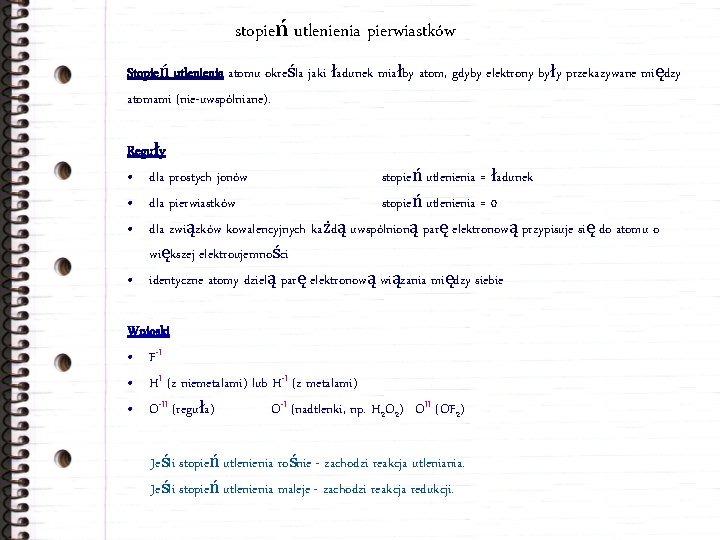 stopień utlenienia pierwiastków
Stopień utlenienia atomu określa jaki ładunek miałby atom, gdyby elektrony były przekazywane między
atomami (nie-uwspólniane).
Reguły
• dla prostych jonów stopień utlenienia = ładunek
• dla pierwiastków stopień utlenienia = 0
• dla związków kowalencyjnych każdą uwspólnioną parę elektronową przypisuje się do atomu o
większej elektroujemności
• identyczne atomy dzielą parę elektronową wiązania między siebie
Wnioski
• F⁻ᴵ
• Hᴵ (z niemetalami) lub H⁻ᴵ (z metalami)
• O⁻ᴵᴵ (reguła) O⁻ᴵ (nadtlenki, np. H₂O₂) Oᴵᴵ (OF₂)
Jeśli stopień utlenienia rośnie - zachodzi reakcja utleniania.
Jeśli stopień utlenienia maleje - zachodzi reakcja redukcji.